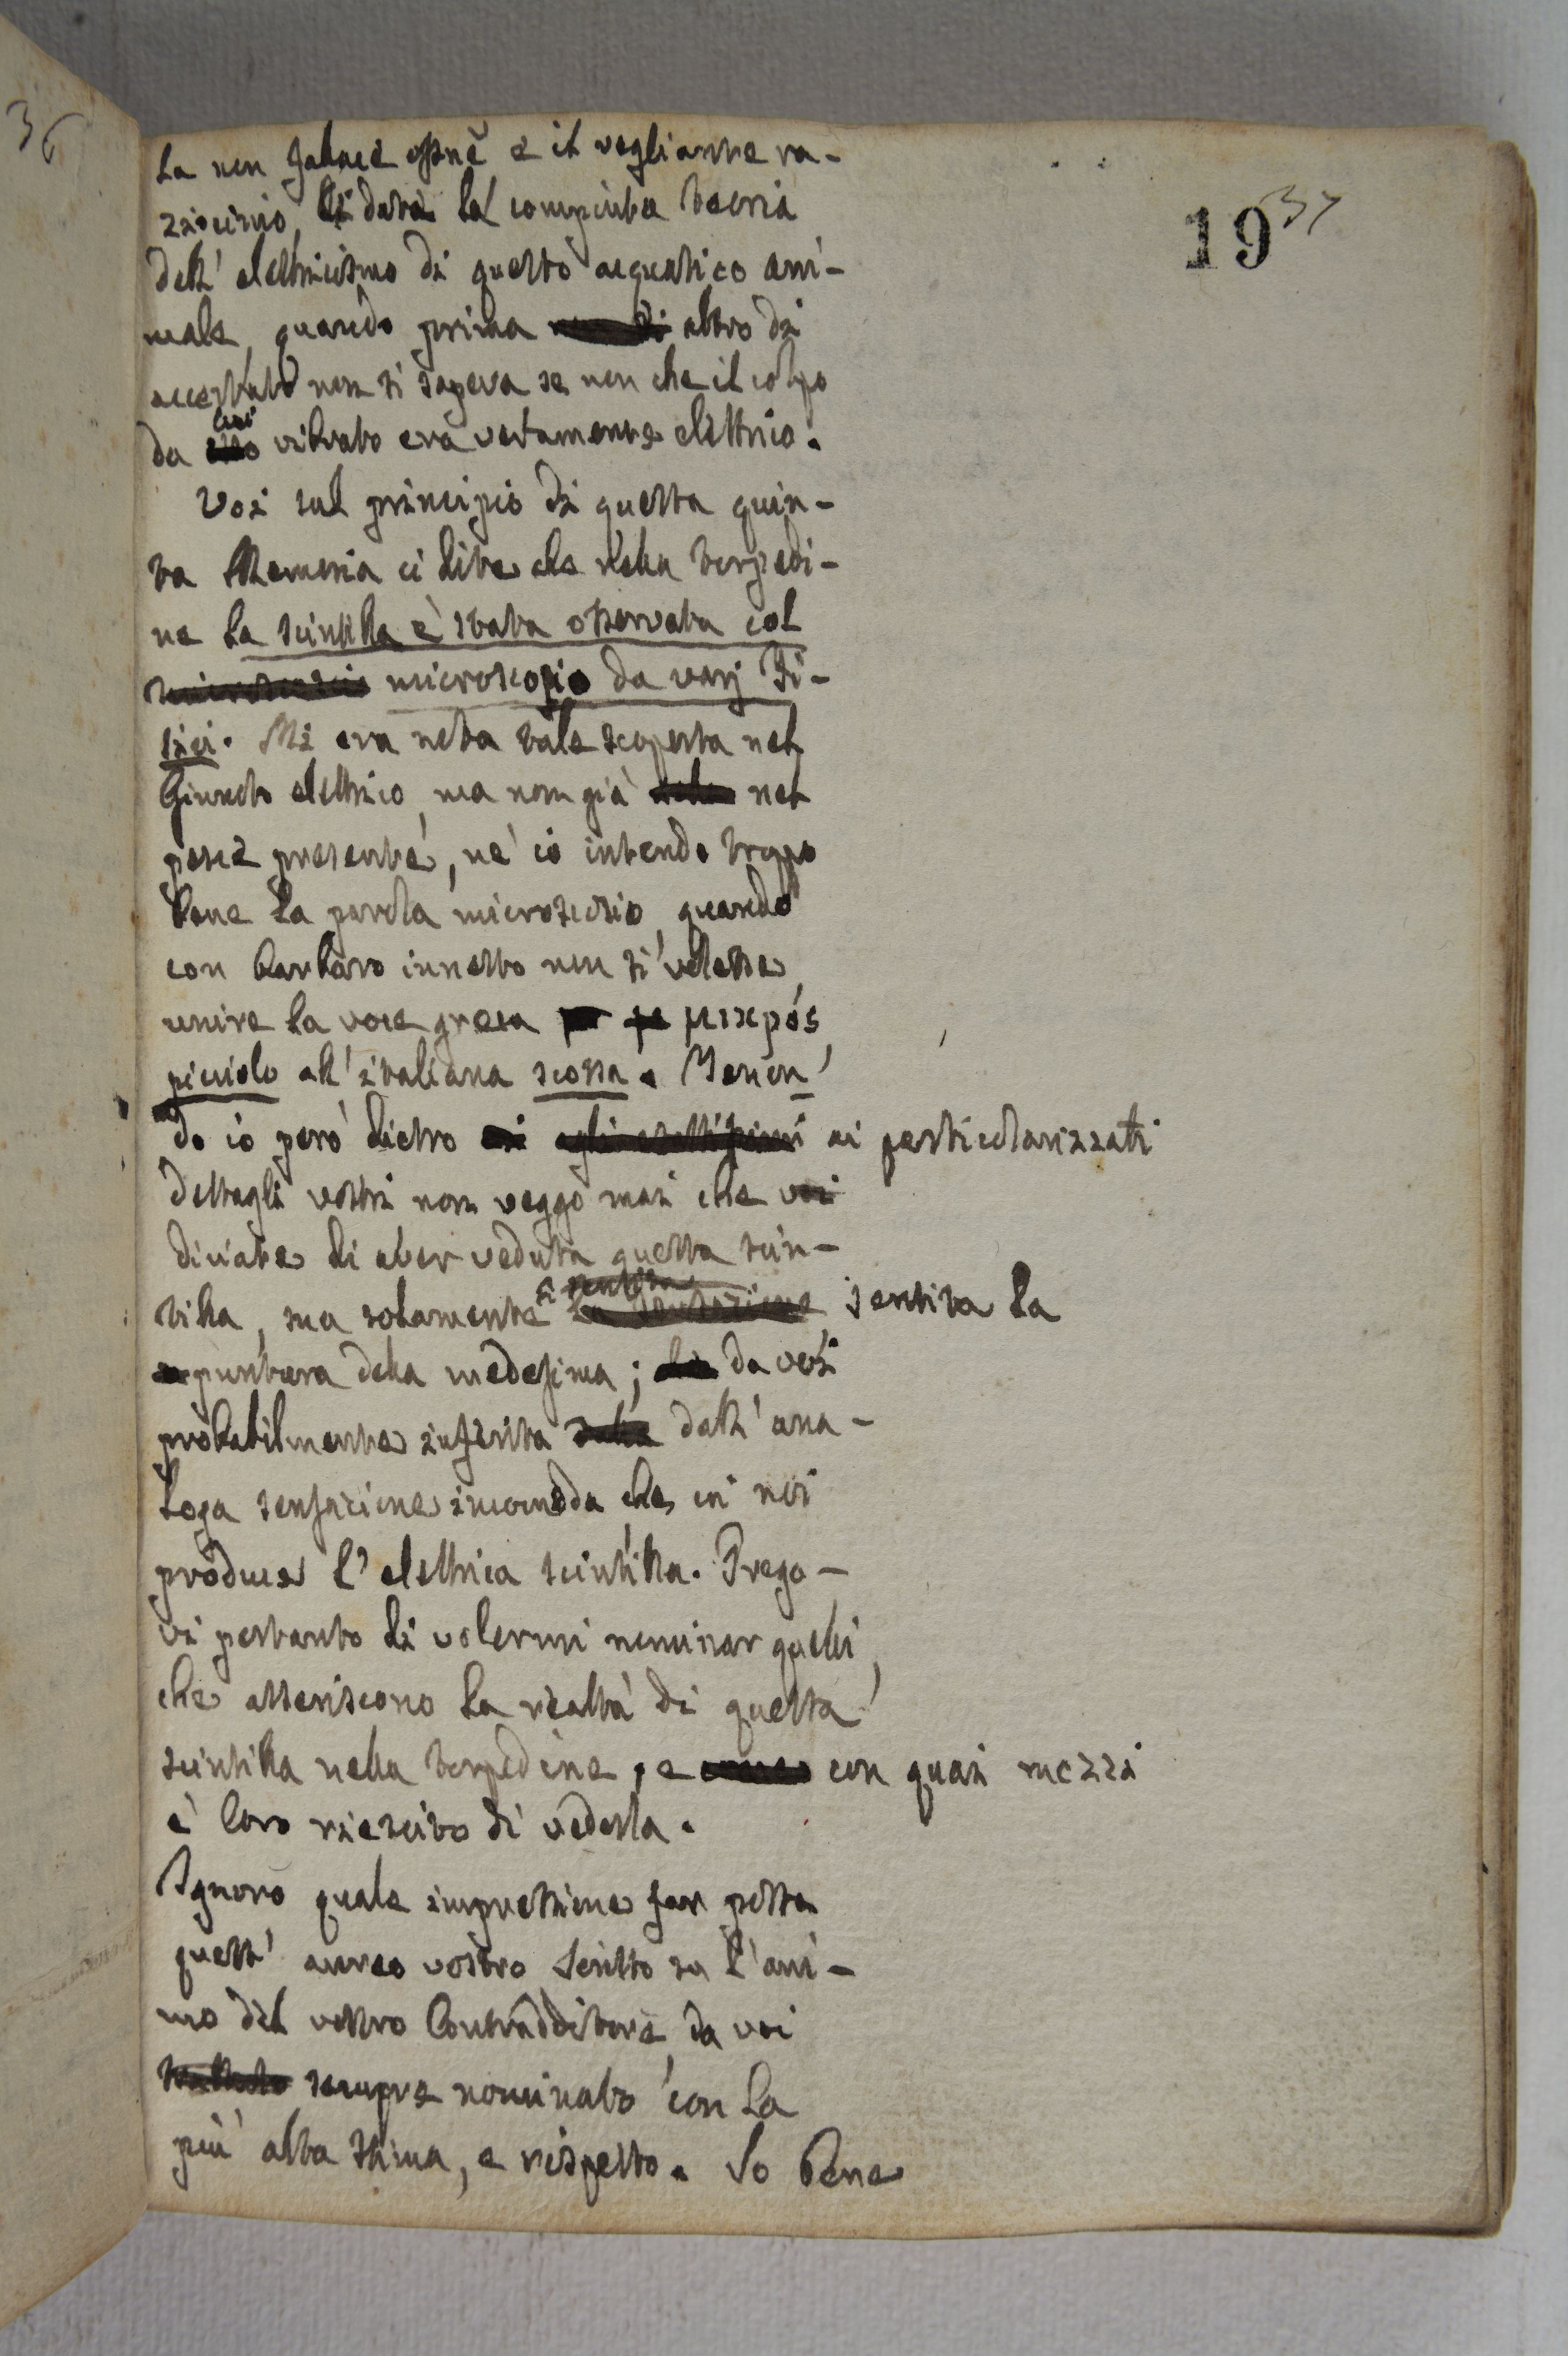 36
19 37
la non fallace ossne e il vegliante ra-
ziocinio, ci darà la compiuta teoria
dell' elettricismo di questo acquatico ani-
male, quando prima altro di
accertato non si sapeva se non che il colpo
da lui vibrato era veramente elettrico.
Voi sul principio di questa quin-
ta Memoria ci dite che nella torpedi-
ne la scintilla è stata osservata col
microscopio da varj Fi-
sici. Mi era nota tale scoperta nel
Ginnoto elettrico, ma non già nel
pesce presente, nè io intendo troppo
bene la parola microscosio, quando
con barbaro innesto non si volesse
unire la voce greca μικρός
picciolo all' italiana scossa. Tenen
do io però dietro ai particolarizzati
dettagli vostri non veggo mai che voi
diciate di aver veduta questa scin-
tilla, ma solamente sentita la
puntura della medesima; da voi
probabilmente inferita dall' ana-
loga sensazione incomoda che in noi
produce l' elettrica scintilla. Prego-
vi pertanto di volermi nominar quelli,
che asseriscono la realtà di questa
scintilla nella torpedine, e con quai mezzi
è loro riescito di vederla.
Ignoro quale impressione far possa
quest' aureo vostro scritto su l' ani-
mo del vostro Contradditore, da voi
sempre nominato con la
più alta stima, e rispetto. So bene